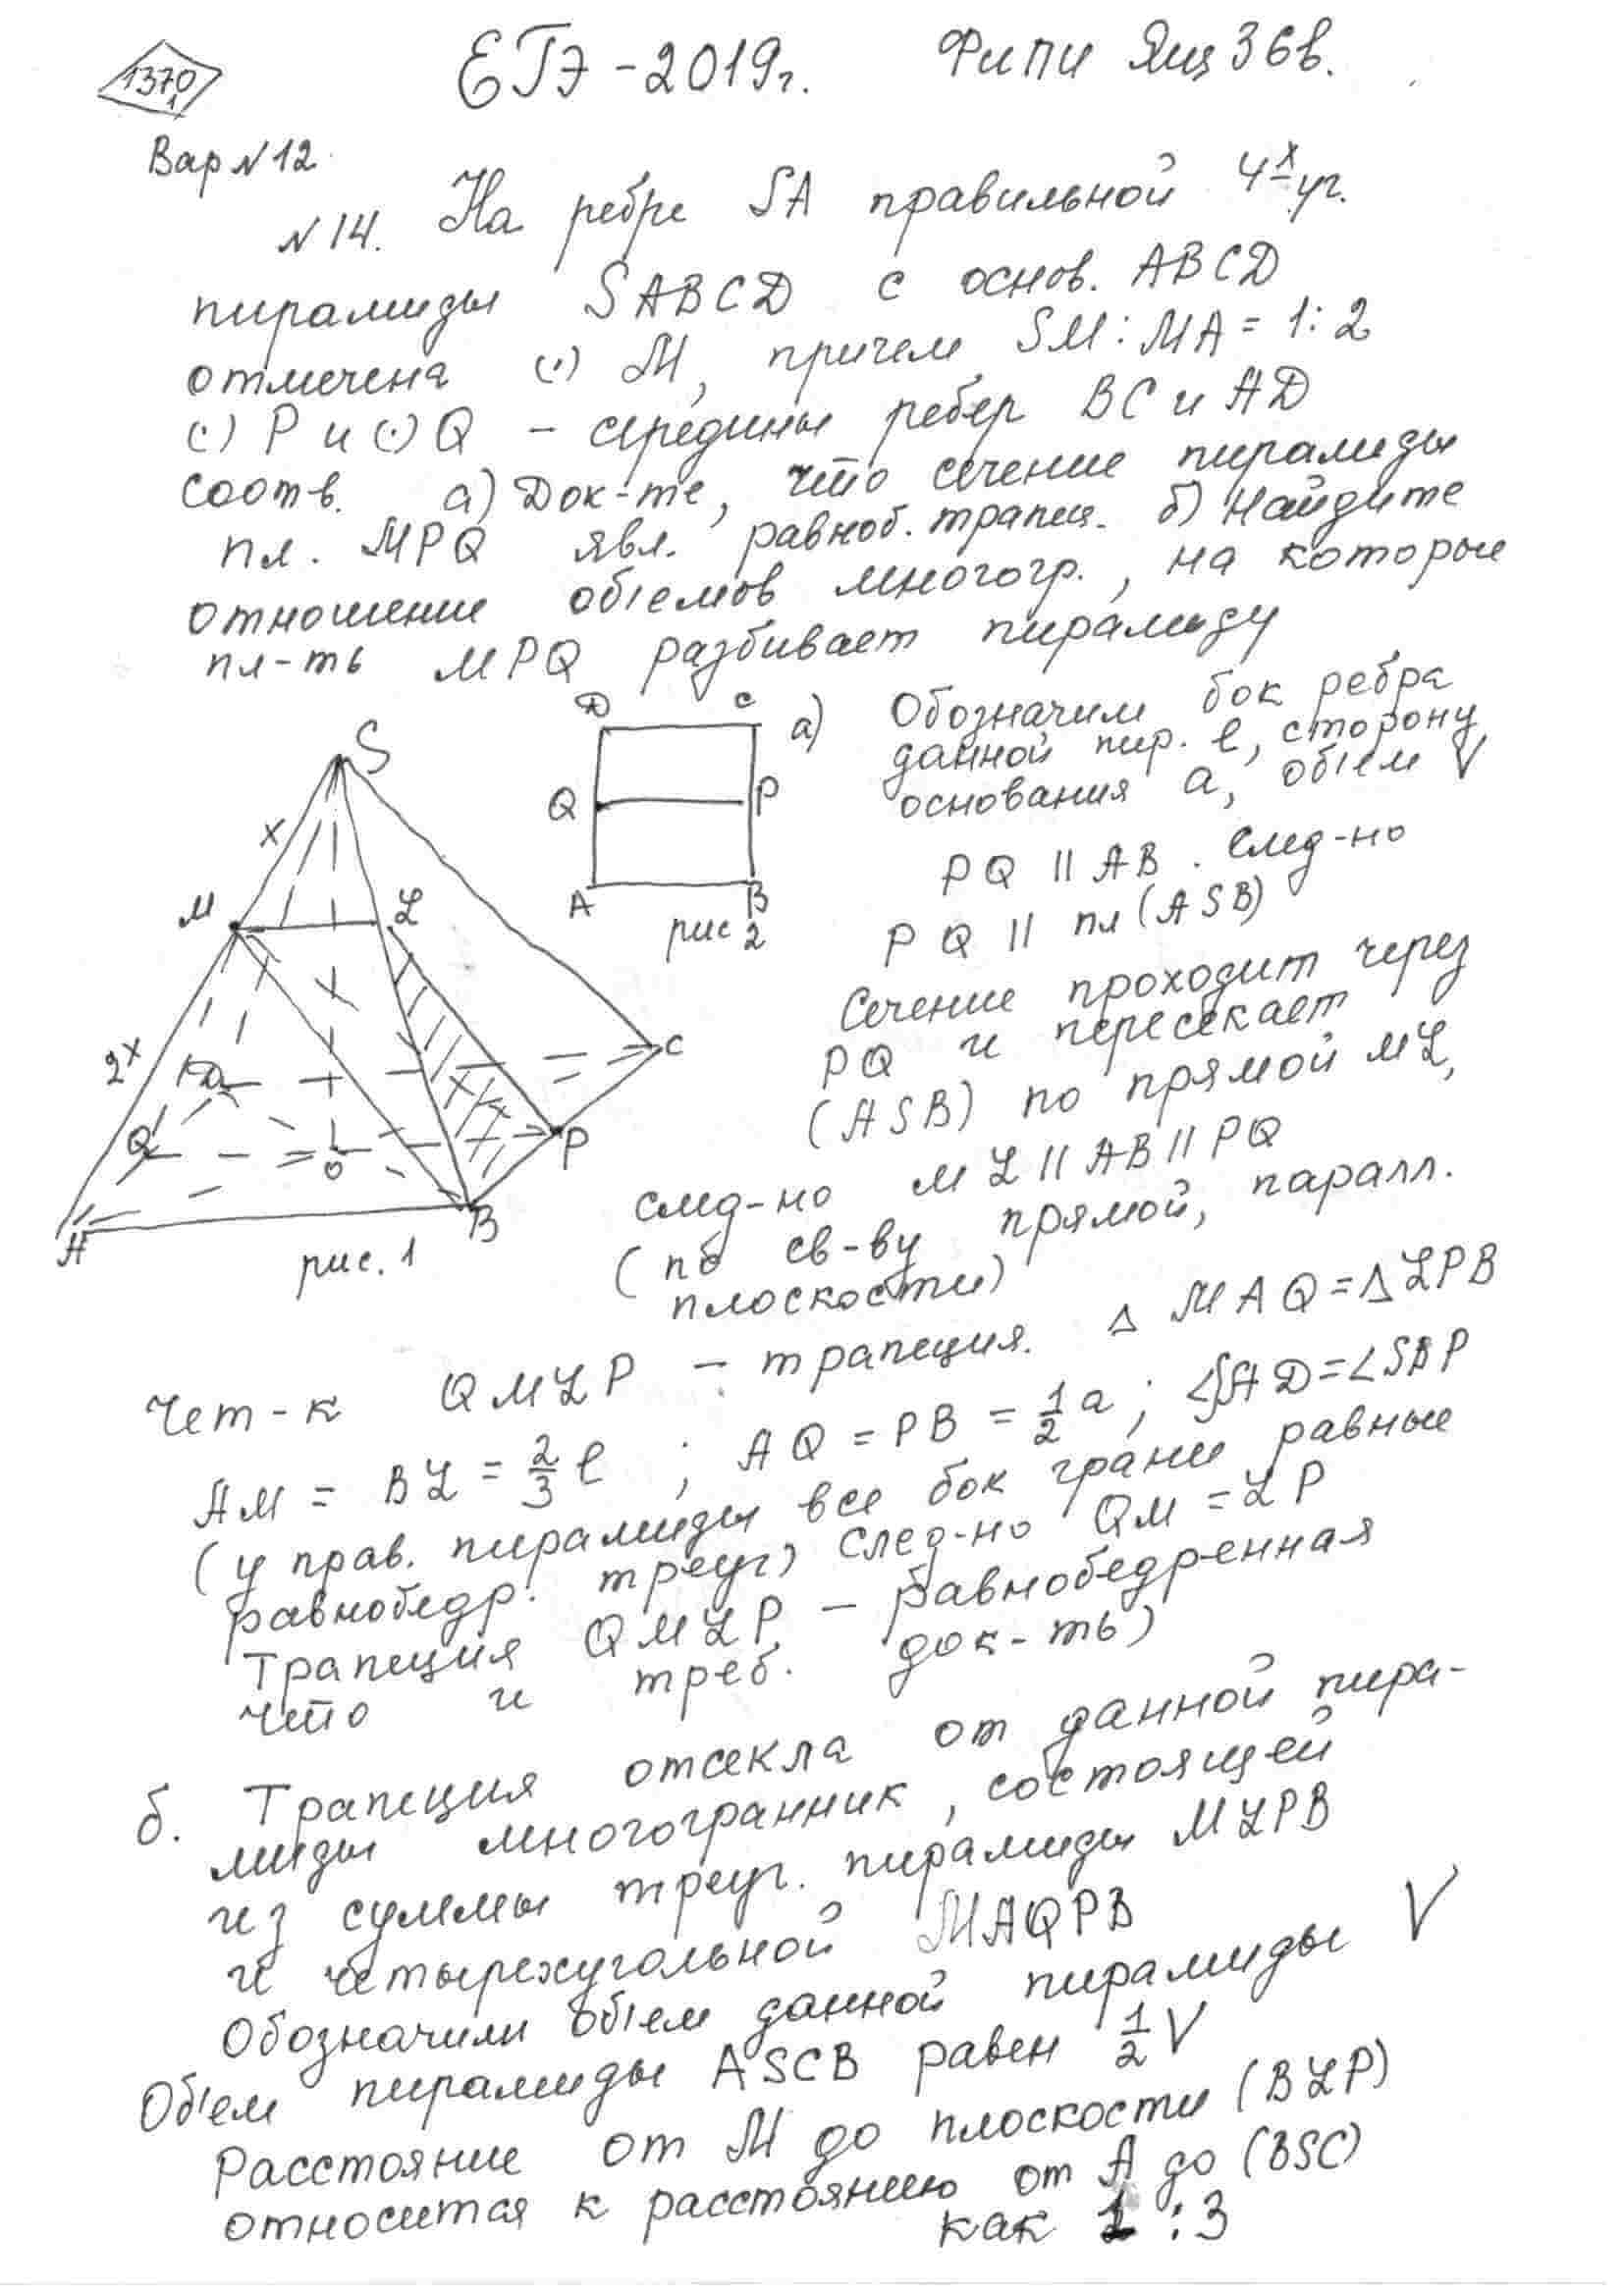 1370
1
ЕГЭ-2019г. ФИПИ Ящ 36в.
Вар N12
N14. На ребре SA правильной 4х уг.
пирамиды SABCD с основ. ABCD
отмечена (·) M, причем SM:MA=1:2
(·) P и (·) Q – середины ребер BC и AD
соотв. а) Док-те, что сечение пирамиды
пл. MPQ явл. равноб. трапец. б) Найдите
отношение об'емов многогр., на которые
пл-ть MPQ разбивает пирамиду
S
x
M
L
2x
D
C
Q
O
P
A
B
рис. 1
D
C
Q
P
A
B
рис 2
а) Обозначим бок ребра
данной пир. l, сторону
основания a, об'ем V
PQ || AB. След-но
PQ || пл (ASB)
Сечение проходит через
PQ и пересекает
(ASB) по прямой ML,
след-но ML || AB || PQ
(по св-ву прямой, паралл.
плоскости)
Чет-к QMLP – трапеция. Δ MAQ = Δ LPB
AM = BL = 2/3 l ; AQ = PB = 1/2 a ; ∠SAD = ∠SBP
(у прав. пирамиды все бок грани равные
равнобедр. треуг) след-но QM = LP
Трапеция QMLP – равнобедренная
что и треб. док-ть)
б. Трапеция отсекла от данной пира-
миды многогранник, состоящей
из суммы треуг. пирамиды MLPB
и четырехугольной MAQPB
Обозначили об'ем данной пирамиды V
Об'ем пирамиды ASCB равен 1/2 V
Расстояние от M до плоскости (BLP)
относится к расстоянию от A до (BSC)
как 1 : 3